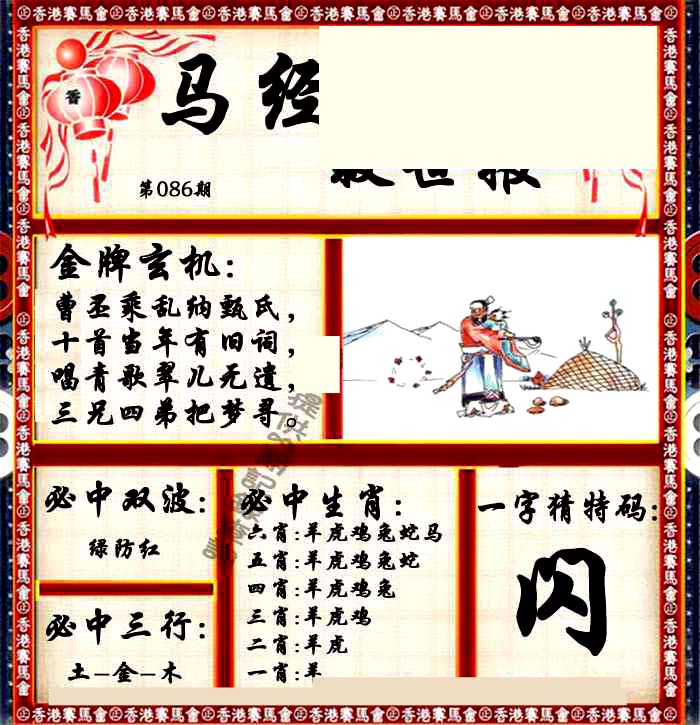 香港賽馬會㊣香港賽馬會㊣香港賽馬會㊣香港賽馬會㊣香港賽馬會㊣香港賽馬會
香
马经
第086期
金牌玄机:
曹丕乘乱纳甄氏，
十首当年有旧词，
唱青歌翠儿无遗，
三兄四弟把梦寻。
必中双波:
绿防红
必中三行:
土-金-木
必中生肖:
六肖:羊虎鸡兔蛇马
五肖:羊虎鸡兔蛇
四肖:羊虎鸡兔
三肖:羊虎鸡
二肖:羊虎
一肖:羊
一字猜特码:
闪
香港賽馬會㊣香港賽馬會㊣香港賽馬會㊣香港賽馬會㊣香港賽馬會㊣香港賽馬會